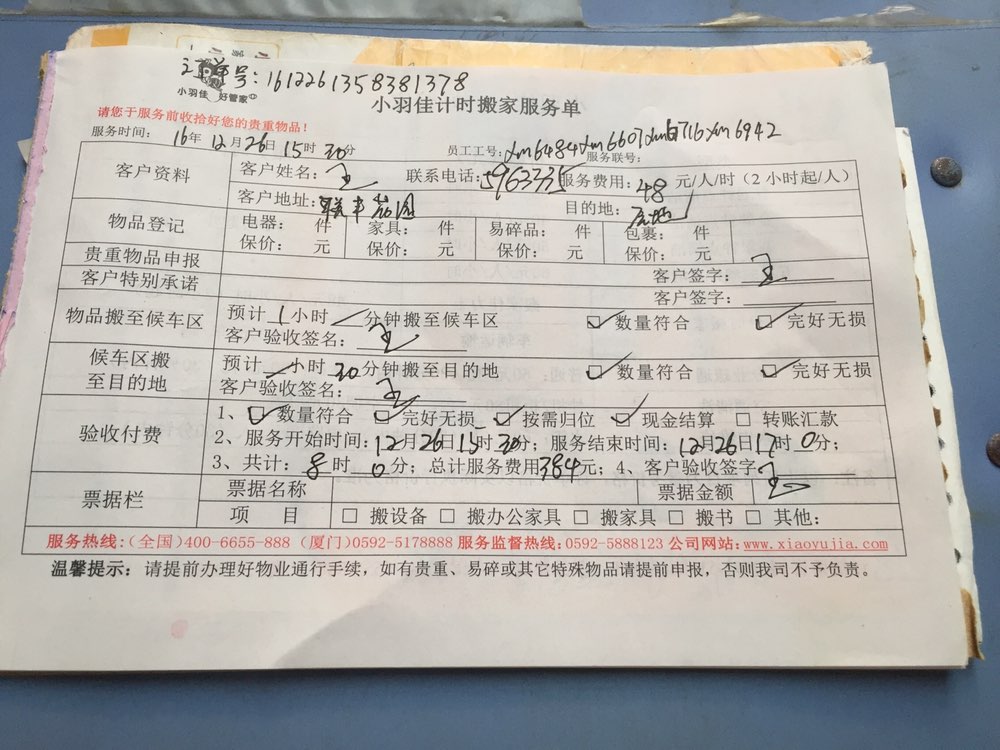 订单号:1612261358381378
小羽佳 好管家
小羽佳计时搬家服务单
请您于服务前收拾好您的贵重物品!
服务时间: 16年12月26日15时30分 员工工号:xm6484xm6607xm6716xm6942
服务联号:
客户资料 客户姓名:王 联系电话:5963335 服务费用:48元/人/时(2小时起/人)
客户地址: 目的地:
物品登记 电器: 件 家具: 件 易碎品: 件 包裹: 件
保价: 元 保价: 元 保价: 元 保价: 元
贵重物品申报 客户签字:王
客户特别承诺 客户签字:
物品搬至候车区 预计1小时/分钟搬至候车区 ☑数量符合 ☑完好无损
客户验收签名:王
候车区搬至目的地 预计/小时30分钟搬至目的地 ☑数量符合 ☑完好无损
客户验收签名:王
验收付费 1、☑数量符合 ☑完好无损 ☑按需归位 ☑现金结算 □转账汇款
2、服务开始时间:12月26日15时30分;服务结束时间:12月26日17时0分;
3、共计:8时0分;总计服务费用384元;4、客户验收签字王
票据栏 票据名称 票据金额
项 目 □搬设备 □搬办公家具 □搬家具 □搬书 □其他:
服务热线:(全国)400-6655-888 (厦门)0592-5178888 服务监督热线:0592-5888123 公司网站:www.xiaoyujia.com
温馨提示:请提前办理好物业通行手续,如有贵重、易碎或其它特殊物品请提前申报,否则我司不予负责。